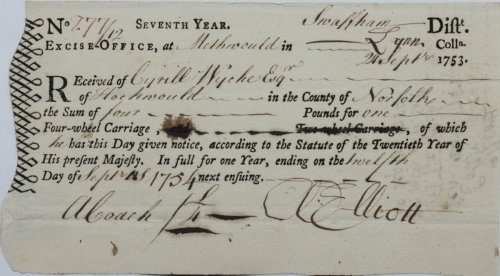 No. SEVENTH YEAR. Swaffham Dist.
EXCISE-OFFICE, at Methwould in Lynn Colln.
Septr 1753.
RECEIVED of Cyrill Wyche Esqr
of Hockwould in the County of Norfolk
the Sum of four Pounds for one
Four-wheel Carriage, Two-wheel Carriage, of which
he has this Day given notice, according to the Statute of the Twentieth Year of
His present Majesty. In full for one Year, ending on the twelfth
Day of Septr 1754 next ensuing.
A Coach £4 Elliott